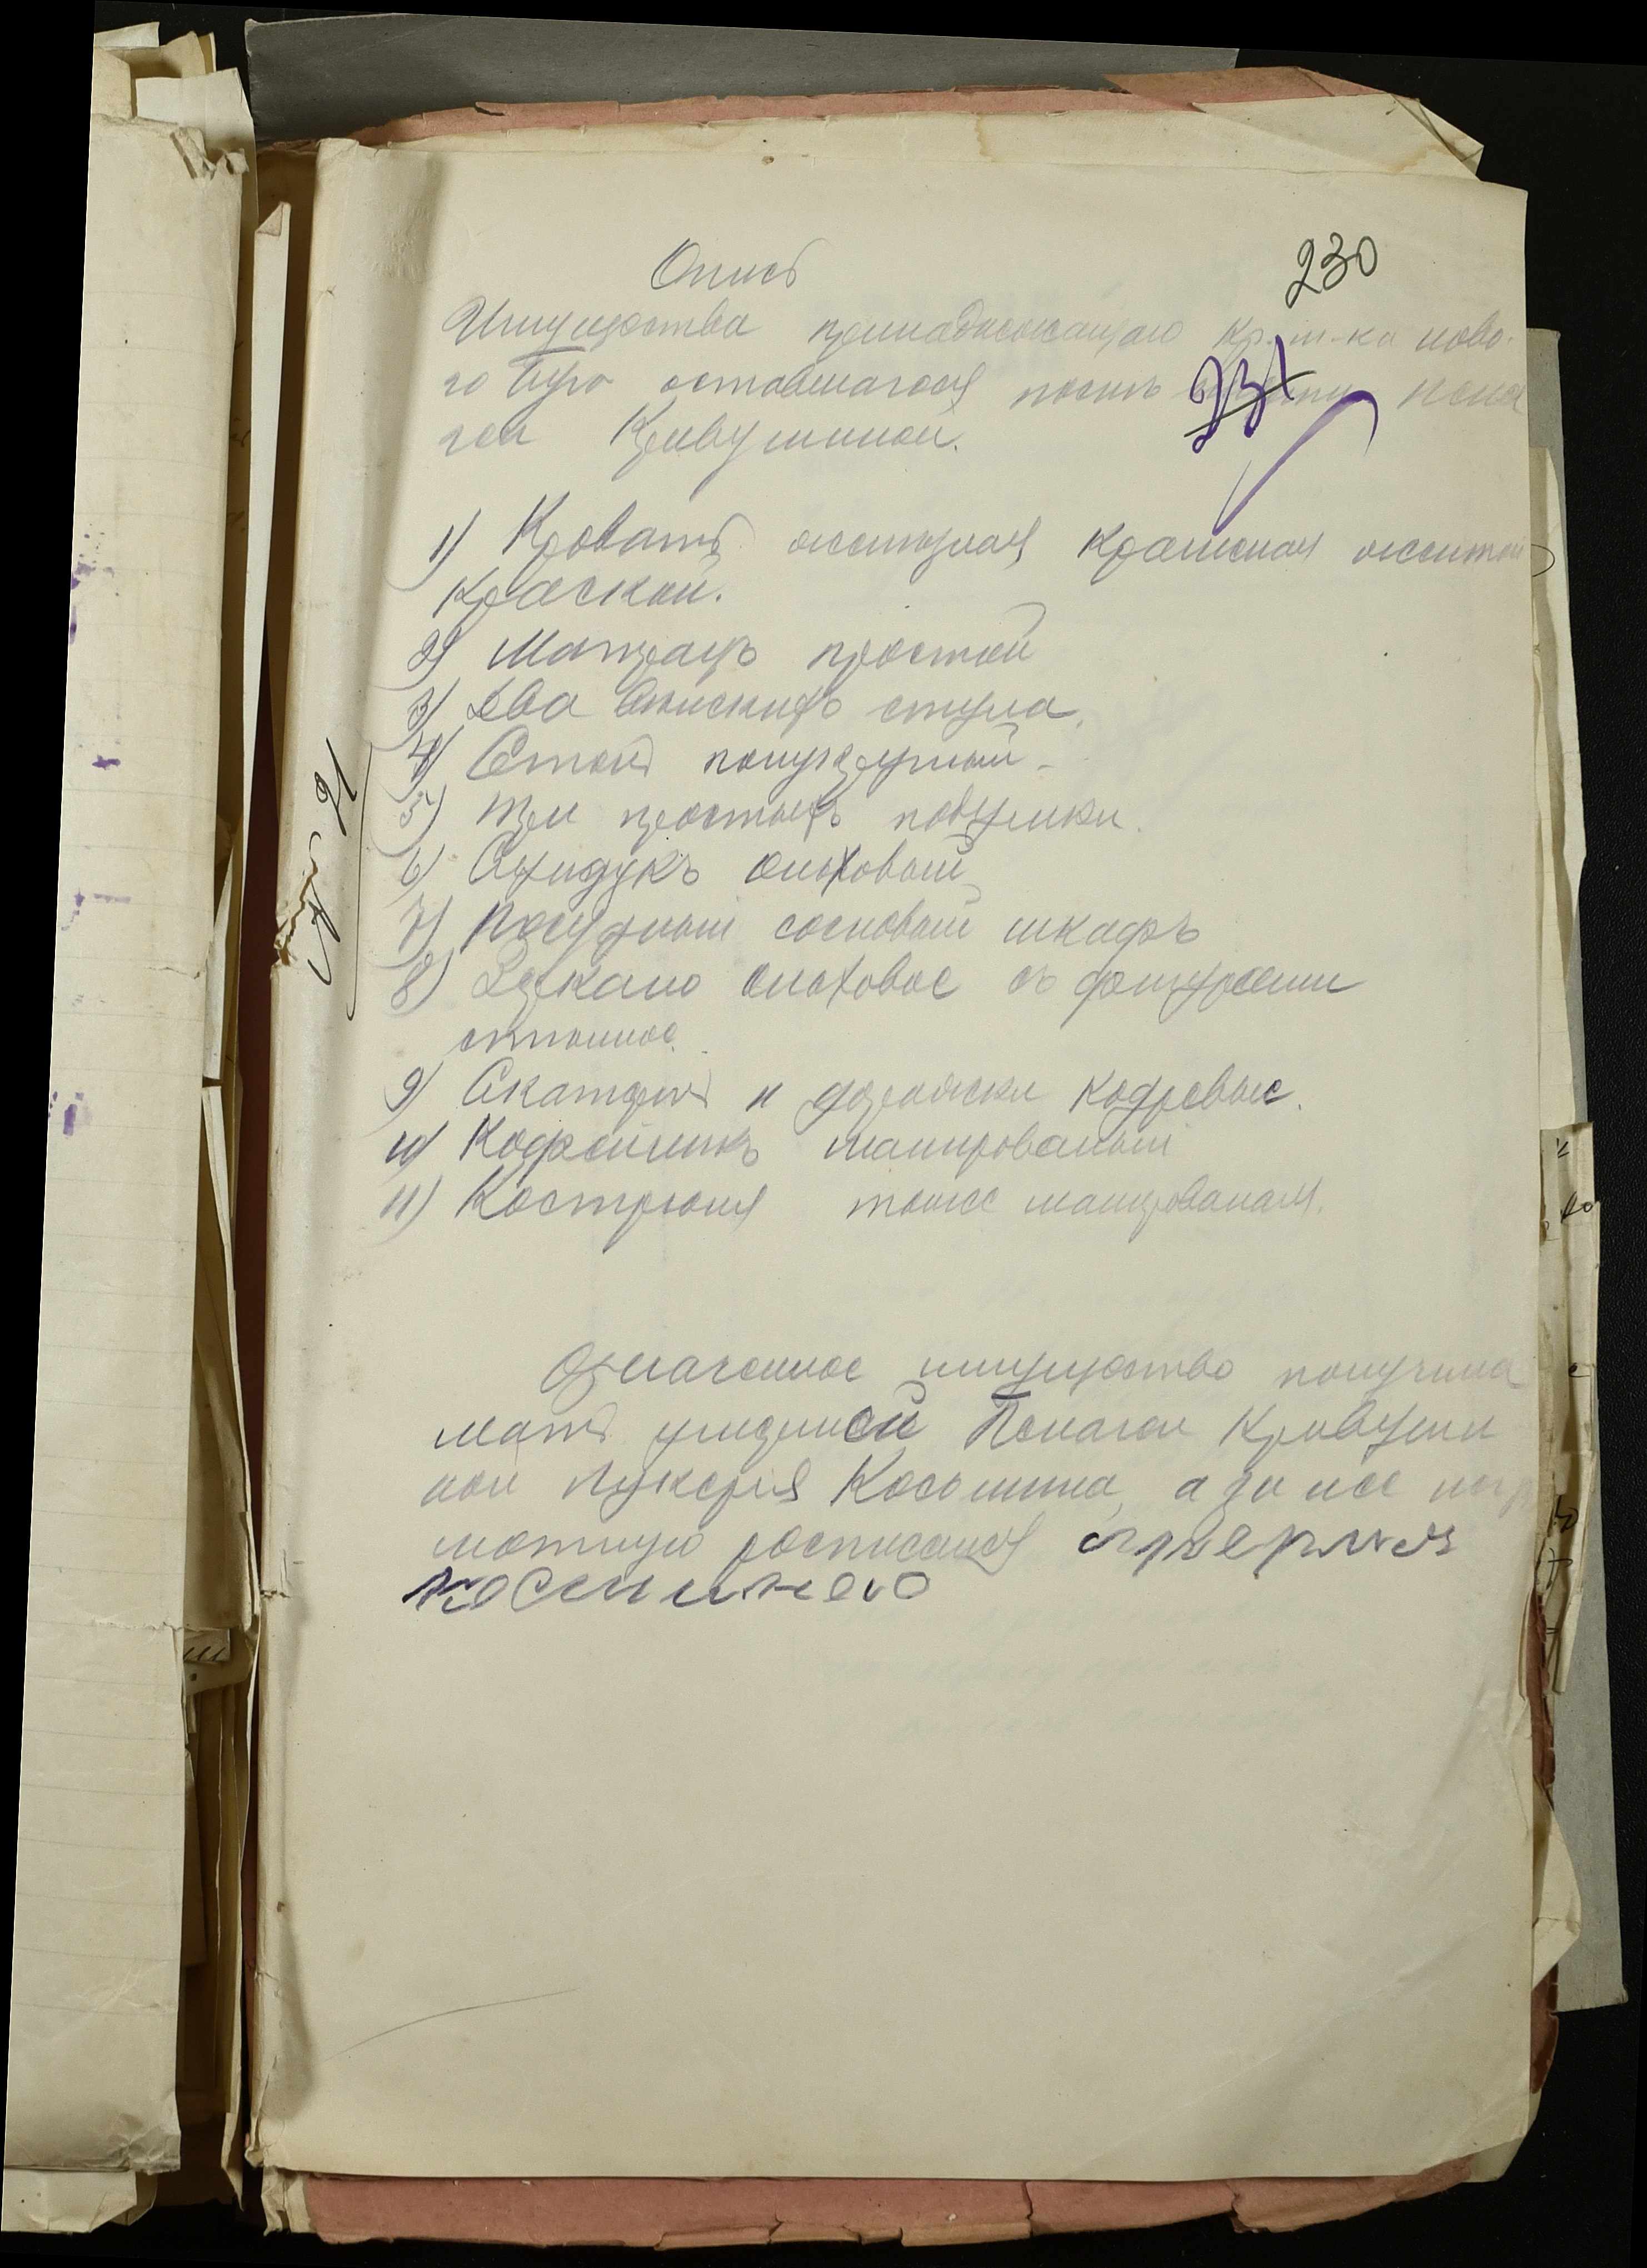 230
Опись
Имущества принадлежащаго кр. м-ка ново-
го Буго оставшагося посль Пела
геи Кривушиной.
231
1) Кровать жестяная крашеная жолтой
краской.
2) Матрацъ простой
3) Два Вѣнскихъ стула.
4) Столъ полукруглый
5) три простыхъ подушки.
6) Сундукъ ольховый
7) Посудный сосновый шкафъ
8) Зеркало ольховое съ
стѣнное.
9) Скатерть и кодревые.
10) Кофейникъ малированый
11) Кострюля тоже малированая.
Означенное имущество получила
мать умершей Пелагеи Кривуши
ной Лукерія Косьмина, а за нее негр
мотную росписался